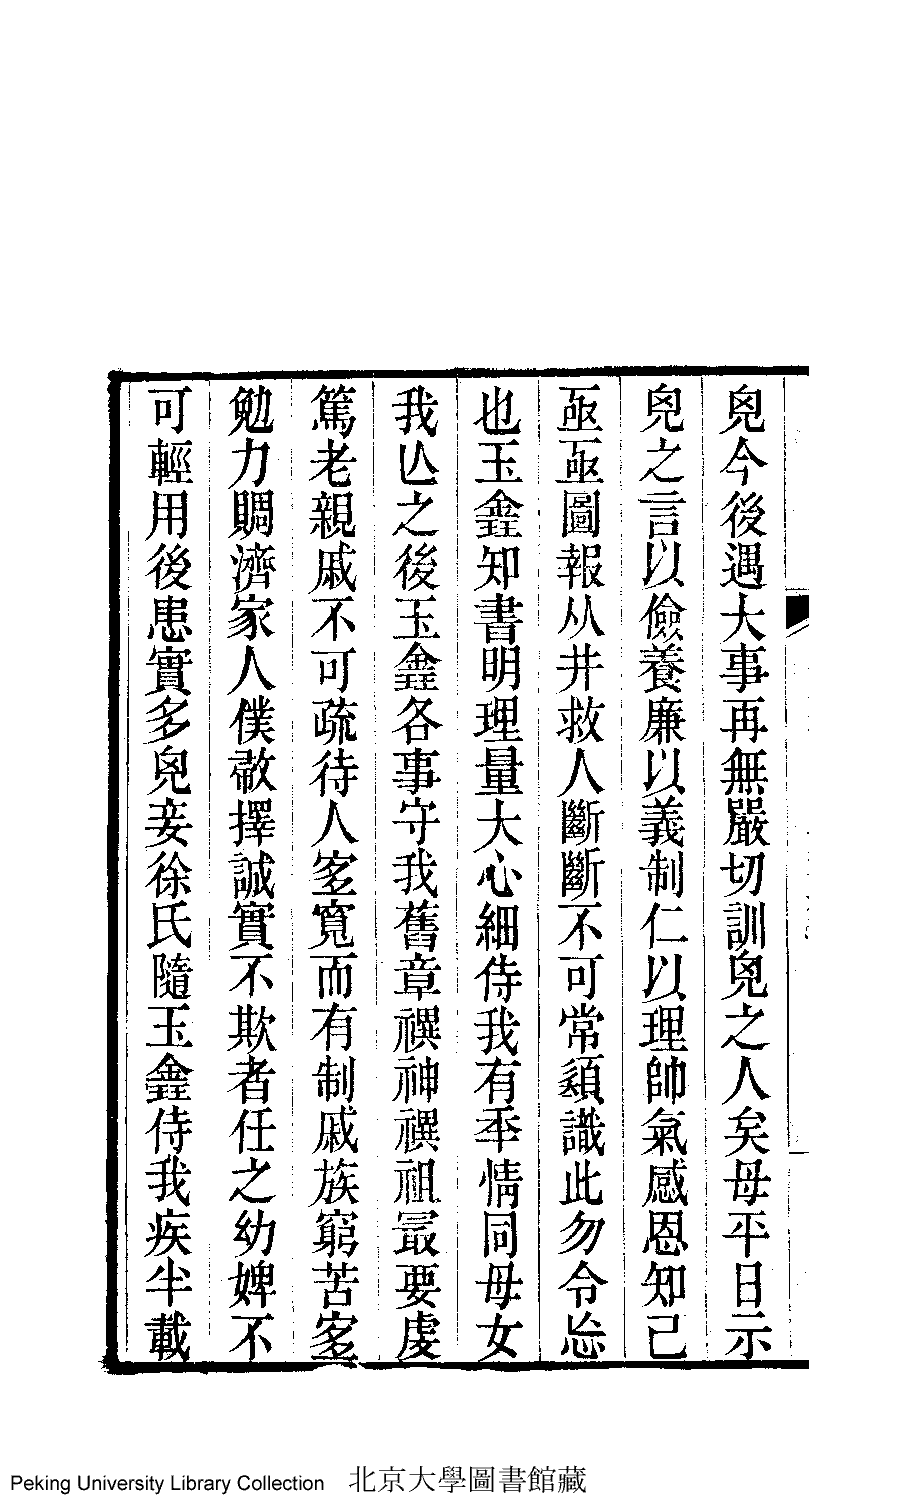 皃今後遇大事再無嚴切訓皃之人矣母平日示
皃之言以儉養廉以義制仁以理帥氣感恩知己
亟亟圖報从井救人斷斷不可常須識此勿令㤀
也玉鑫知書明理量大心細侍我有秊情同母女
我亾之後玉鑫各事守我舊章禩神禩祖冣要虔
篤老親戚不可疏待人宐寬而有制戚族窮苦宐
勉力賙濟家人僕𢾭擇誠實不欺者任之幼婢不
可輕用後患實多皃妾徐氏隨玉鑫侍我疾半載
Peking University Library Collection 北京大學圖書館藏